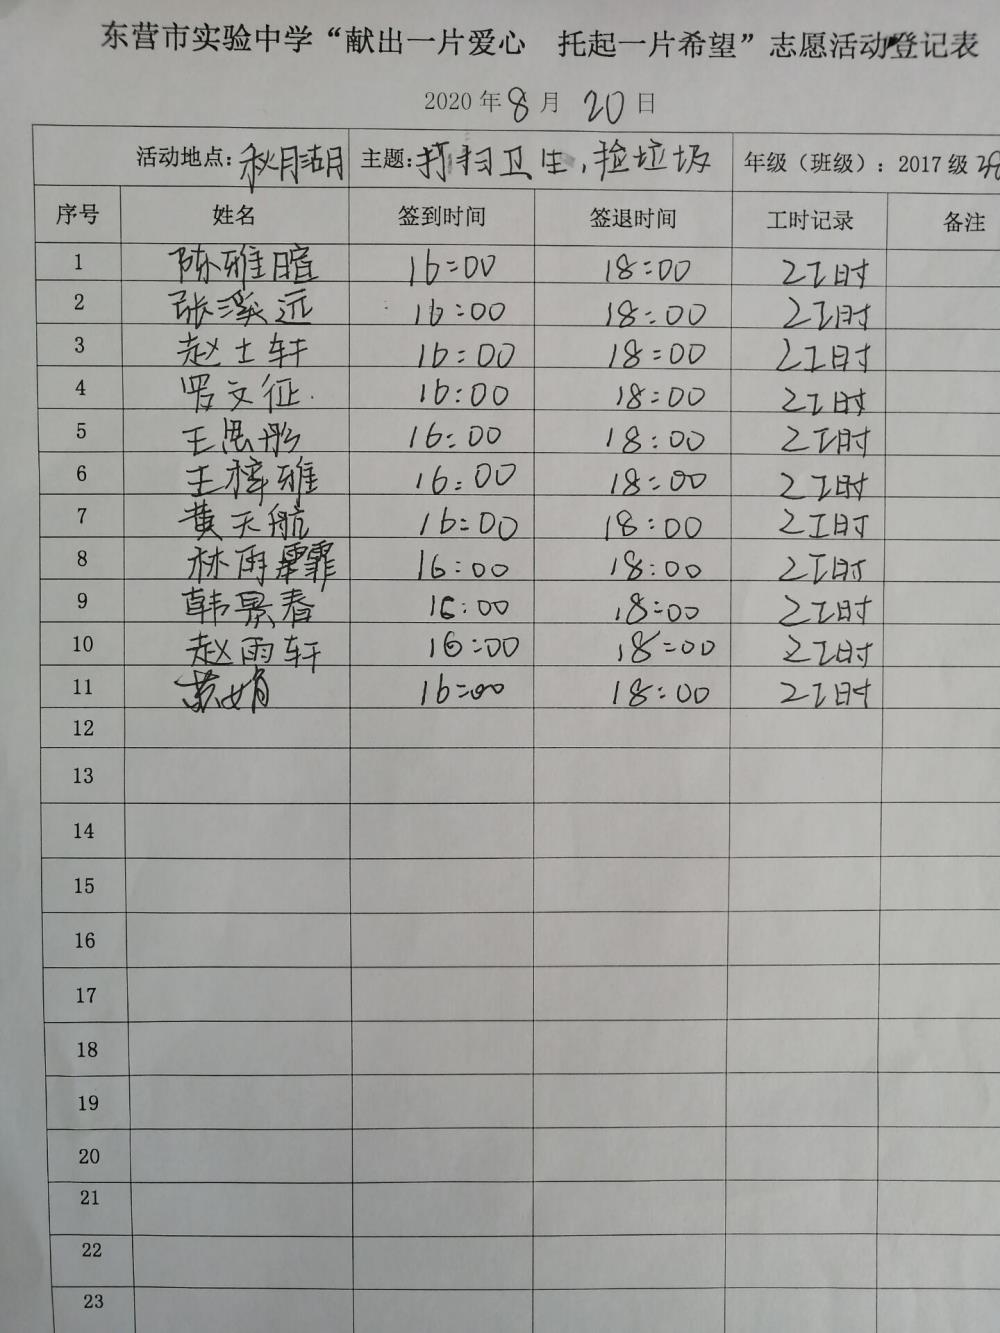 东营市实验中学“献出一片爱心 托起一片希望”志愿活动登记表
2020 年 8 月 20 日
活动地点: 秋月湖 主题: 打扫卫生,捡垃圾 年级（班级）: 2017 级
序号 姓名 签到时间 签退时间 工时记录 备注
1 陈雅暄 16:00 18:00 2工时
2 张溪远 16:00 18:00 2工时
3 赵士轩 16:00 18:00 2工时
4 罗文征 16:00 18:00 2工时
5 王思彤 16:00 18:00 2工时
6 王梓雅 16:00 18:00 2工时
7 黄天航 16:00 18:00 2工时
8 林雨霏 16:00 18:00 2工时
9 韩景春 16:00 18:00 2工时
10 赵雨轩 16:00 18:00 2工时
11 苏娟 16:00 18:00 2工时
12
13
14
15
16
17
18
19
20
21
22
23